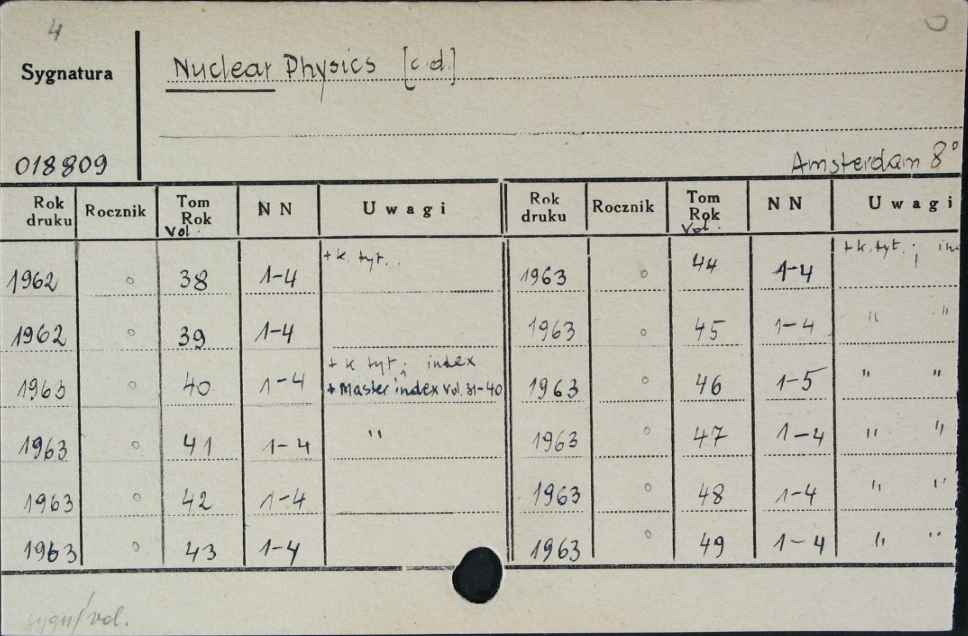 4
Sygnatura Nuclear Physics [c.d.]
018809 Amsterdam 8°
Rok druku Rocznik Tom Rok Vol. NN Uwagi Rok druku Rocznik Tom Rok Vol. NN Uwagi
1962 ° 38 1-4 + k. tyt. 1963 ° 44 1-4 + k. tyt. ;
1962 ° 39 1-4 1963 ° 45 1-4 " "
1963 ° 40 1-4 + k tyt. ; index + Master index Vol. 31-40 1963 ° 46 1-5 " "
1963 ° 41 1-4 " 1963 ° 47 1-4 " "
1963 ° 42 1-4 1963 ° 48 1-4 " "
1963 ° 43 1-4 1963 ° 49 1-4 " "
sygn/vol.